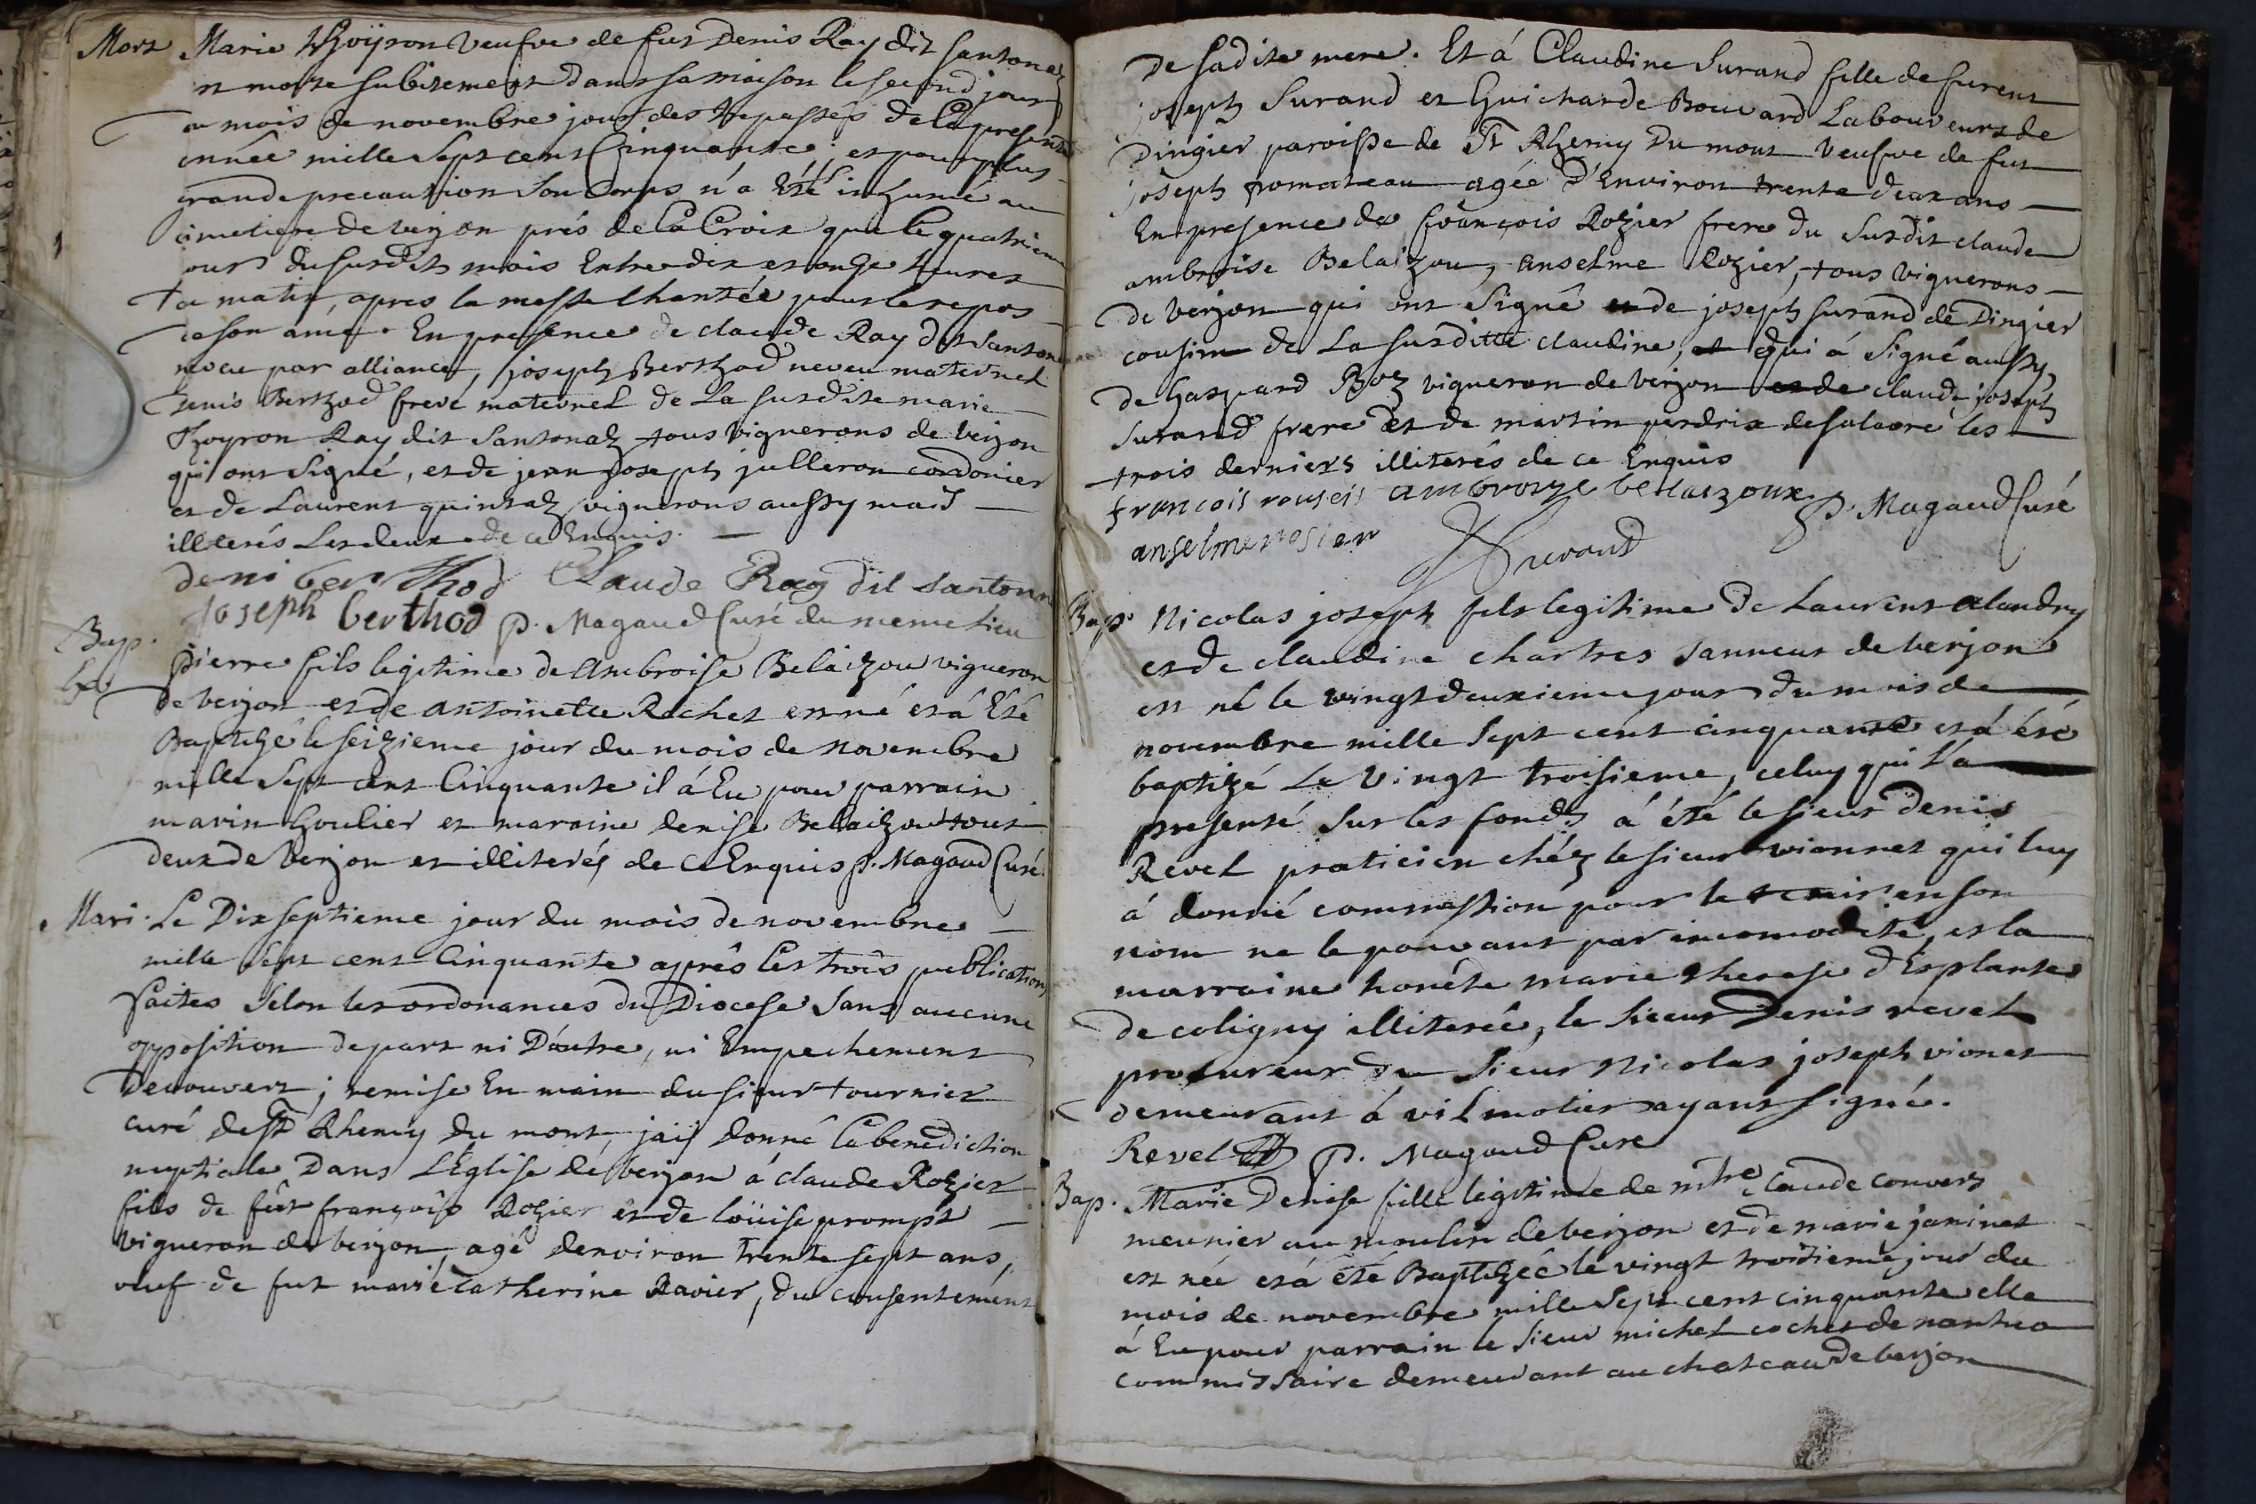 Mort Marie Thoÿron Veufve de fut Denis Ray dit Santonaz
et morte subitement dans sa maison le second jour
du mois de novembre jour des trepassés de la presente
année mille sept cent Cinquante ; et pour plus
grande precaution Son Corps n'a Eté inhumé au
cimetiere de verjon prés de la Croix que le quatrieme
jour du susdit mois Entre dix et onze heures
du matin, apres la messe Chantée pour le repos
de son ame. En presence de claude Ray dit Santona
neveu par alliance, joseph Berthod neveu maternel
Denis Berthod frere maternel de la susdite marie
Thoyron Ray dit Santonaz tous vignerons de verjon
qui ont signé, et de jean joseph julleron cordonier
et de Laurent quinsaz vignerons aussy mais
illiterés Les deux de ce Enquis.
deni berthod Claude Ray dit Santona
joseph berthod P. Magaud Curé du meme lieu
Bap. Pierre fils legitime de Ambroise Belaizou vigneron
de verjon et de antoinette Rochet est né et á Eté
Baptizé le seizieme jour du mois de Novembre
mille sept cent Cinquante il á Eu pour parrain
marin Goulier et maraine denise Belaizou tous
deux de verjon et illiterés de ce Enquis P. Magaud Curé.
Mari. Le Dixseptieme jour du mois de novembre
mille sept cent Cinquante aprés les trois publications
faites selon les ordonances du Diocese sans aucune
opposition de part ni D'autre, ni Empechement
Decouvert ; remise En main du sieur tournier
curé de St Rhemy du mont, jaiÿ donné la benediction
nuptiale Dans L'Eglise de verjon á claude Rozier
fils de fut françois Rozier et de loüise prompt
vigneron de verjon, agé denviron trente sept ans,
veuf de fut marie Catherine Ravier, du consentement
de sadite mere. Et á Claudine Surand fille de furent
joseph Surand et Guicharde Bouvard Laboureurs de
Dingier paroisse de St Rhemy Du mont Veufve de fut
joseph pomateau agée d'Environ trente deux ans
En presence de françois Rozier frere du Susdit claude
ambroise Belaizou, anselme Rozier, tous vignerons
de verjon qui ont signé et de joseph surand de Dingier
cousin de La susditte claudine, et qui á signé aussy,
de Gaspard Boz vigneron de verjon et de claude joseph
Surand frere et de martin perdrix de salavre les
trois derniers illiterés de ce Enquis
francois rousier ambroize belaizoux P. Magaud Curé
anselme rosier J Surand
Bap. Nicolas joseph fils legitime de Laurent alandry
et de claudine chartres tanneur de verjon
est né le vingtdeuxieme jour du mois de
novembre mille sept cent cinquante et á été
baptizé Le Vingt troisieme, celuy qui l'a
presenté sur les fonds á été le sieur denis
Revel praticien chéz le sieur vionnet qui luy
á donné commission pour le tenir en son
nom ne le pouvant par incomodité, et la
marraine honéte marie therese d'Esplante
de coligny illiterée, le sieur Denis revel
procureur du sieur Nicolas joseph vionet
demeurant á vilmotier ayant signé.
Revel P. Magaud Curé
Bap. Marie Denise fille legitime de mtre Claude Convert
meunier au moulin de verjon et de marie janinet
est née et á été Baptizée le vingt troisieme jour du
mois de novembre mille sept cent cinquante elle
á Eu pour parrain le sieur michel cochet de nantua
commissaire demeurant au chateau de verjon